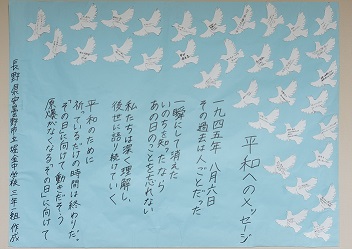 平和へのメッセージ
一九四五年 八月六日
その過去は人ごとだった
一瞬にして消えた
いのちを知ったなら
あの日のことを忘れない
私たちは深く理解し、
後世に語り続けていく
平和のために
祈っているだけの時間は終わりだ。
その日に向けて動きだそう
原爆がなくなるその日に向けて
長野県安曇野市立堀金中学校 三年二組 作成